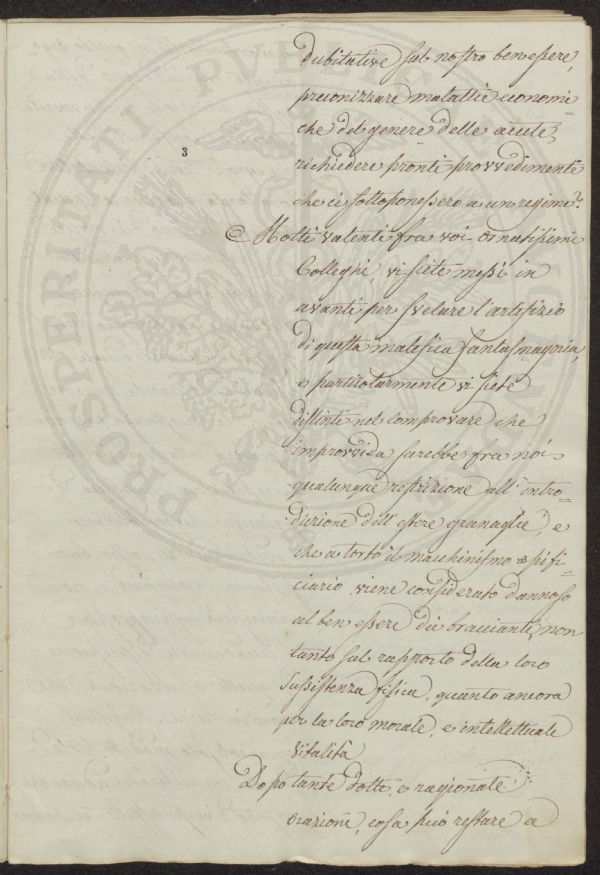 PROSPERITATI PVBLICAE
3
dubitative sul nostro ben essere,
preconizzare malattie economi-
che del genere delle acute,
richiedere pronti provvedimenti
che ci sottoponessero a un regime?
Molti valenti fra voi Ornatissimi
Colleghi, vi siete messi in
avanti per svelare l'artifizio
di questa malefica fantasmagoria,
e particolarmente vi siete
distinti nel comprovare che
improvvida sarebbe fra noi
qualunque restrizione all'intro-
duzione dell'estere granaglie, e
che a torto il macchinismo opifi-
ciario viene considerato dannoso
al ben essere dei braccianti, non
tanto sul rapporto della loro
sussistenza fisica, quanto ancora
per la loro morale, e intellettuale
vitalità
Dopo tante dotte, e ragionate
orazioni, cosa può restare a